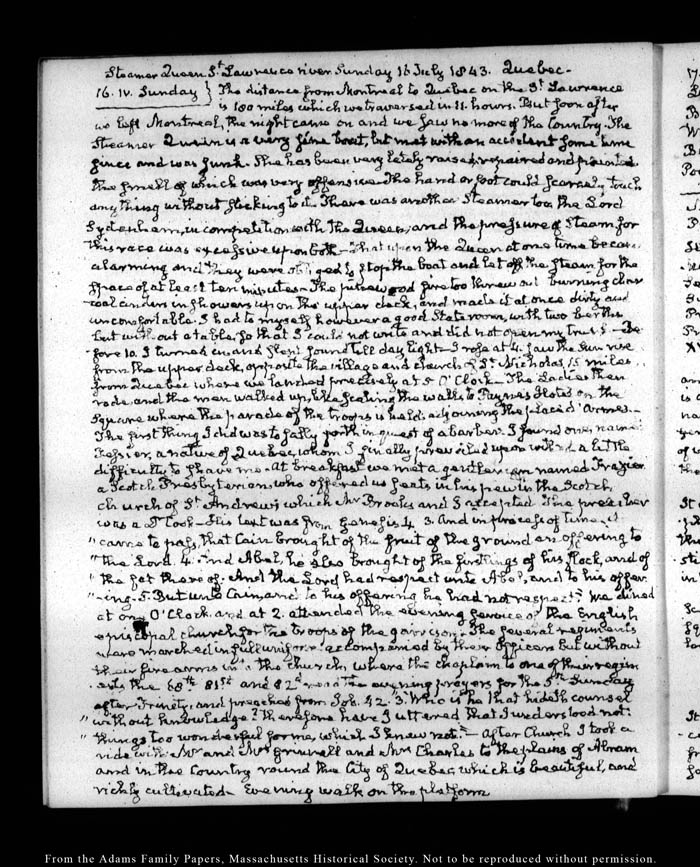 Steamer Queen St. Lawrence river Sunday 16 July 1843. Quebec.
16. IV. Sunday } The distance from Montreal to Quebec on the St. Lawrence
is 180 miles which we traversed in 11 hours. But soon after
we left Montreal, the night came on and we saw no more of the Country. The
Steamer Queen is a very fine boat, but met with an accident some time
since and was sunk. She has been very lately raised, repaired and painted
the smell of which was very offensive. The hand or foot could scarcely touch
any thing without sticking to it. There was another Steamer too the Lord
Sydenham, in competition with the Queen, and the pressure of Steam for
this race was excessive upon both. That upon the Queen at one time became
alarming and they were obliged to stop the boat and let off the steam for the
space of at least ten minutes. The pitchwood fire too threw out burning char
coal cinders in showers upon the upper deck, and made it at once dirty and
uncomfortable. I had to myself however a good State room, with two berths
but without a table, so that I could not write and did not open my trunk. Be
fore 10. I turned in and slept sound till day light. I rose at 4. saw the Sun rise
from the upper deck, opposite the village and church of St. Nicholas, 15 miles
from Quebec where we landed precisely at 5 O'Clock. The Ladies then
rode, and the men walked up, like scaling the walls to Payne's Hotel on the
Square where the parade of the troops is held, adjoining the place d'Armes.
The first thing I did was to sally forth in quest of a barber. I found one, named
Tessier, a native of Quebec, whom I finally prevailed upon with a little
difficulty to shave me. At breakfast we met a gentleman named Frazier
a Scotch Presbyterian, who offered us seats in his pew in the Scotch
church of St. Andrews which Mr Brooks and I accepted. The preacher
was a Scot. His text was from Genesis 4. 3. And in process of time it
" came to pass, that Cain brought of the fruit of the ground an offering to
" the Lord. 4. And Abel, he also brought of the firstlings of his flock, and of
" the fat thereof. And the Lord had respect unto Abel, and to his offer
" ing. 5. But unto Cain, and to his offering he had not respect." We dined
at one O'Clock and at 2. attended the evening service of the English
episcopal church for the troops of the garrison. The several regiments
were marched in full uniform accompanied by their Officers but without
their fire arms into the church, where the chaplain to one of the regim
ents the 68th 81st and 82d read the evening prayers for the 5th Sunday
after Trinity, and preached from Job. 42. 3. "Who is he that hideth counsel
" without knowledge? therefore have I uttered that I understood not.
" things too wonderful for me, which I knew not." After Church I took a
ride with Mr and Mrs Grinnell and Mrs Charles to the plains of Abram
and in the Country round the City of Quebec which is beautiful, and
richly cultivated. Evening walk on the platform
From the Adams Family Papers, Massachusetts Historical Society. Not to be reproduced without permission.